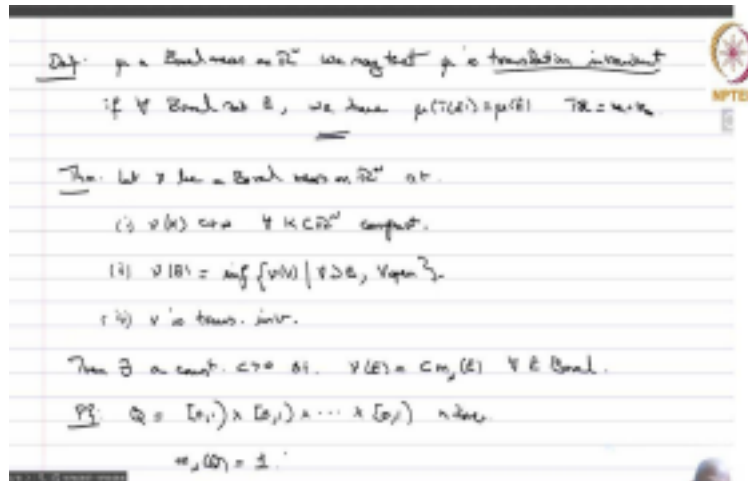 Def. μ a Borel meas on ℝᴺ we say that μ is translation invariant
NPTEL
if ∀ Borel set E, we have μ(T(E)) = μ(E) Tx = x+x₀
Thm. Let ν be a Borel meas on ℝᴺ s.t.
(i) ν(K) < +∞ ∀ K⊂ℝᴺ compact.
(ii) ν(E) = inf {ν(V) | V⊃E, V open}.
(iii) ν is trans. inv.
Then ∃ a const. c>0 s.t. ν(E) = c m_N(E) ∀ E Borel.
Pf: Q = [0,1) × [0,1) × ... × [0,1) n times
m_N(Q) = 1.